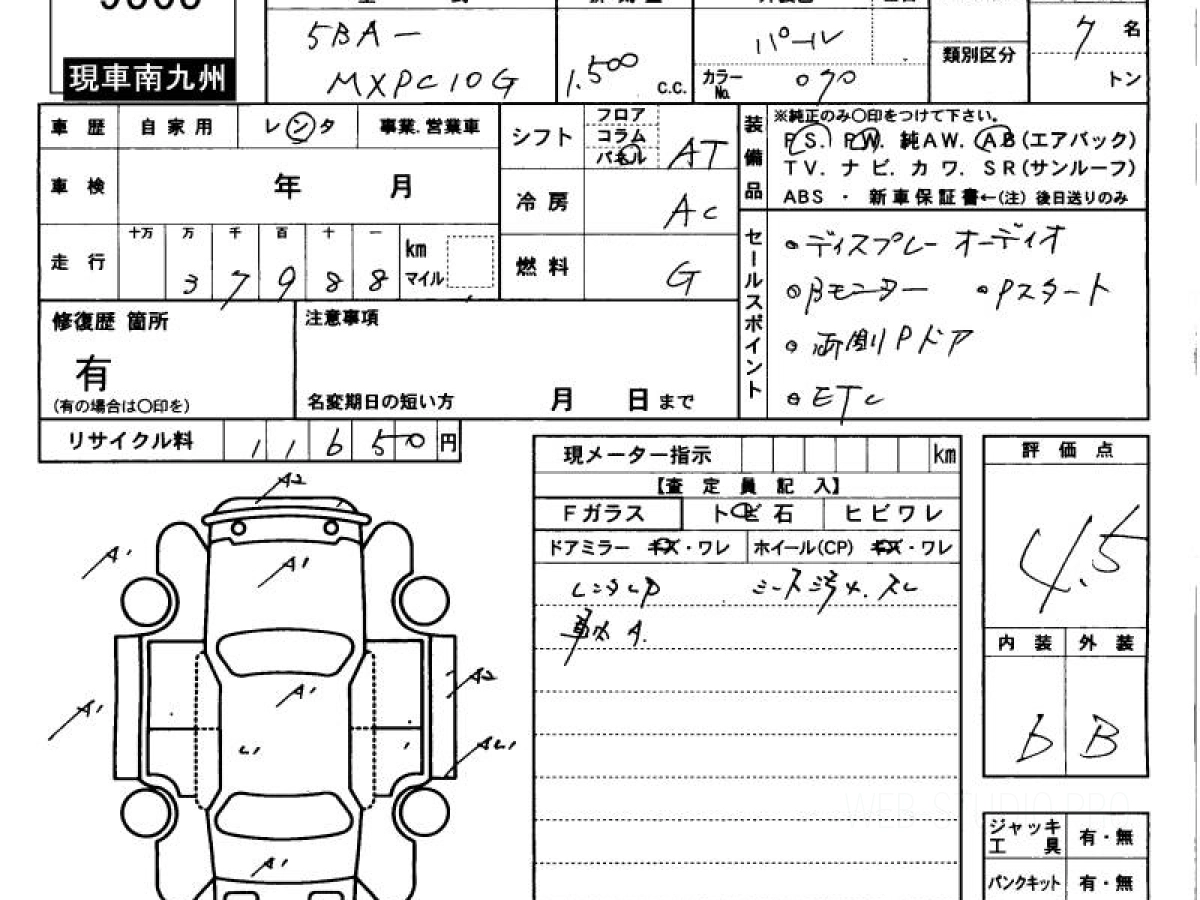 現車南九州
5BA-
MXPC10G
1.500 C.C.
パール
カラーNo. 070
類別区分
7 名
トン
車歴 自家用 レンタ 事業.営業車
シフト フロア コラム パネル AT
装備品
※純正のみ〇印をつけて下さい。
PS. PW. 純AW. AB(エアバック)
TV. ナビ. カワ. SR(サンルーフ)
ABS ・ 新車保証書←(注) 後日送りのみ
車検 年 月
冷房 AC
走行 十万 万 千 百 十 一 km マイル
3 7 9 8 8
燃料 G
セールスポイント
ディスプレーオーディオ
Bモニター Pスタート
両側Pドア
ETC
修復歴 箇所
有
(有の場合は〇印を)
注意事項
名変期日の短い方 月 日まで
リサイクル料 11650円
現メーター指示 km
【査定員記入】
Fガラス トビ石 ヒビワレ
ドアミラー キズ・ワレ ホイール(CP) キズ・ワレ
レンタUP シート汚れ.スレ
A.
評価点
4.5
内装 外装
b B
A2
A1
A1
A2
A1
A1
AU1
U1
A1
ジャッキ工具 有・無
パンクキット 有・無
WEB-STUDIO.PRO